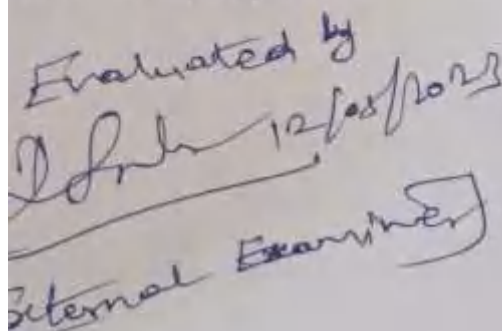 Evaluated by
12/08/2023
External Examiner